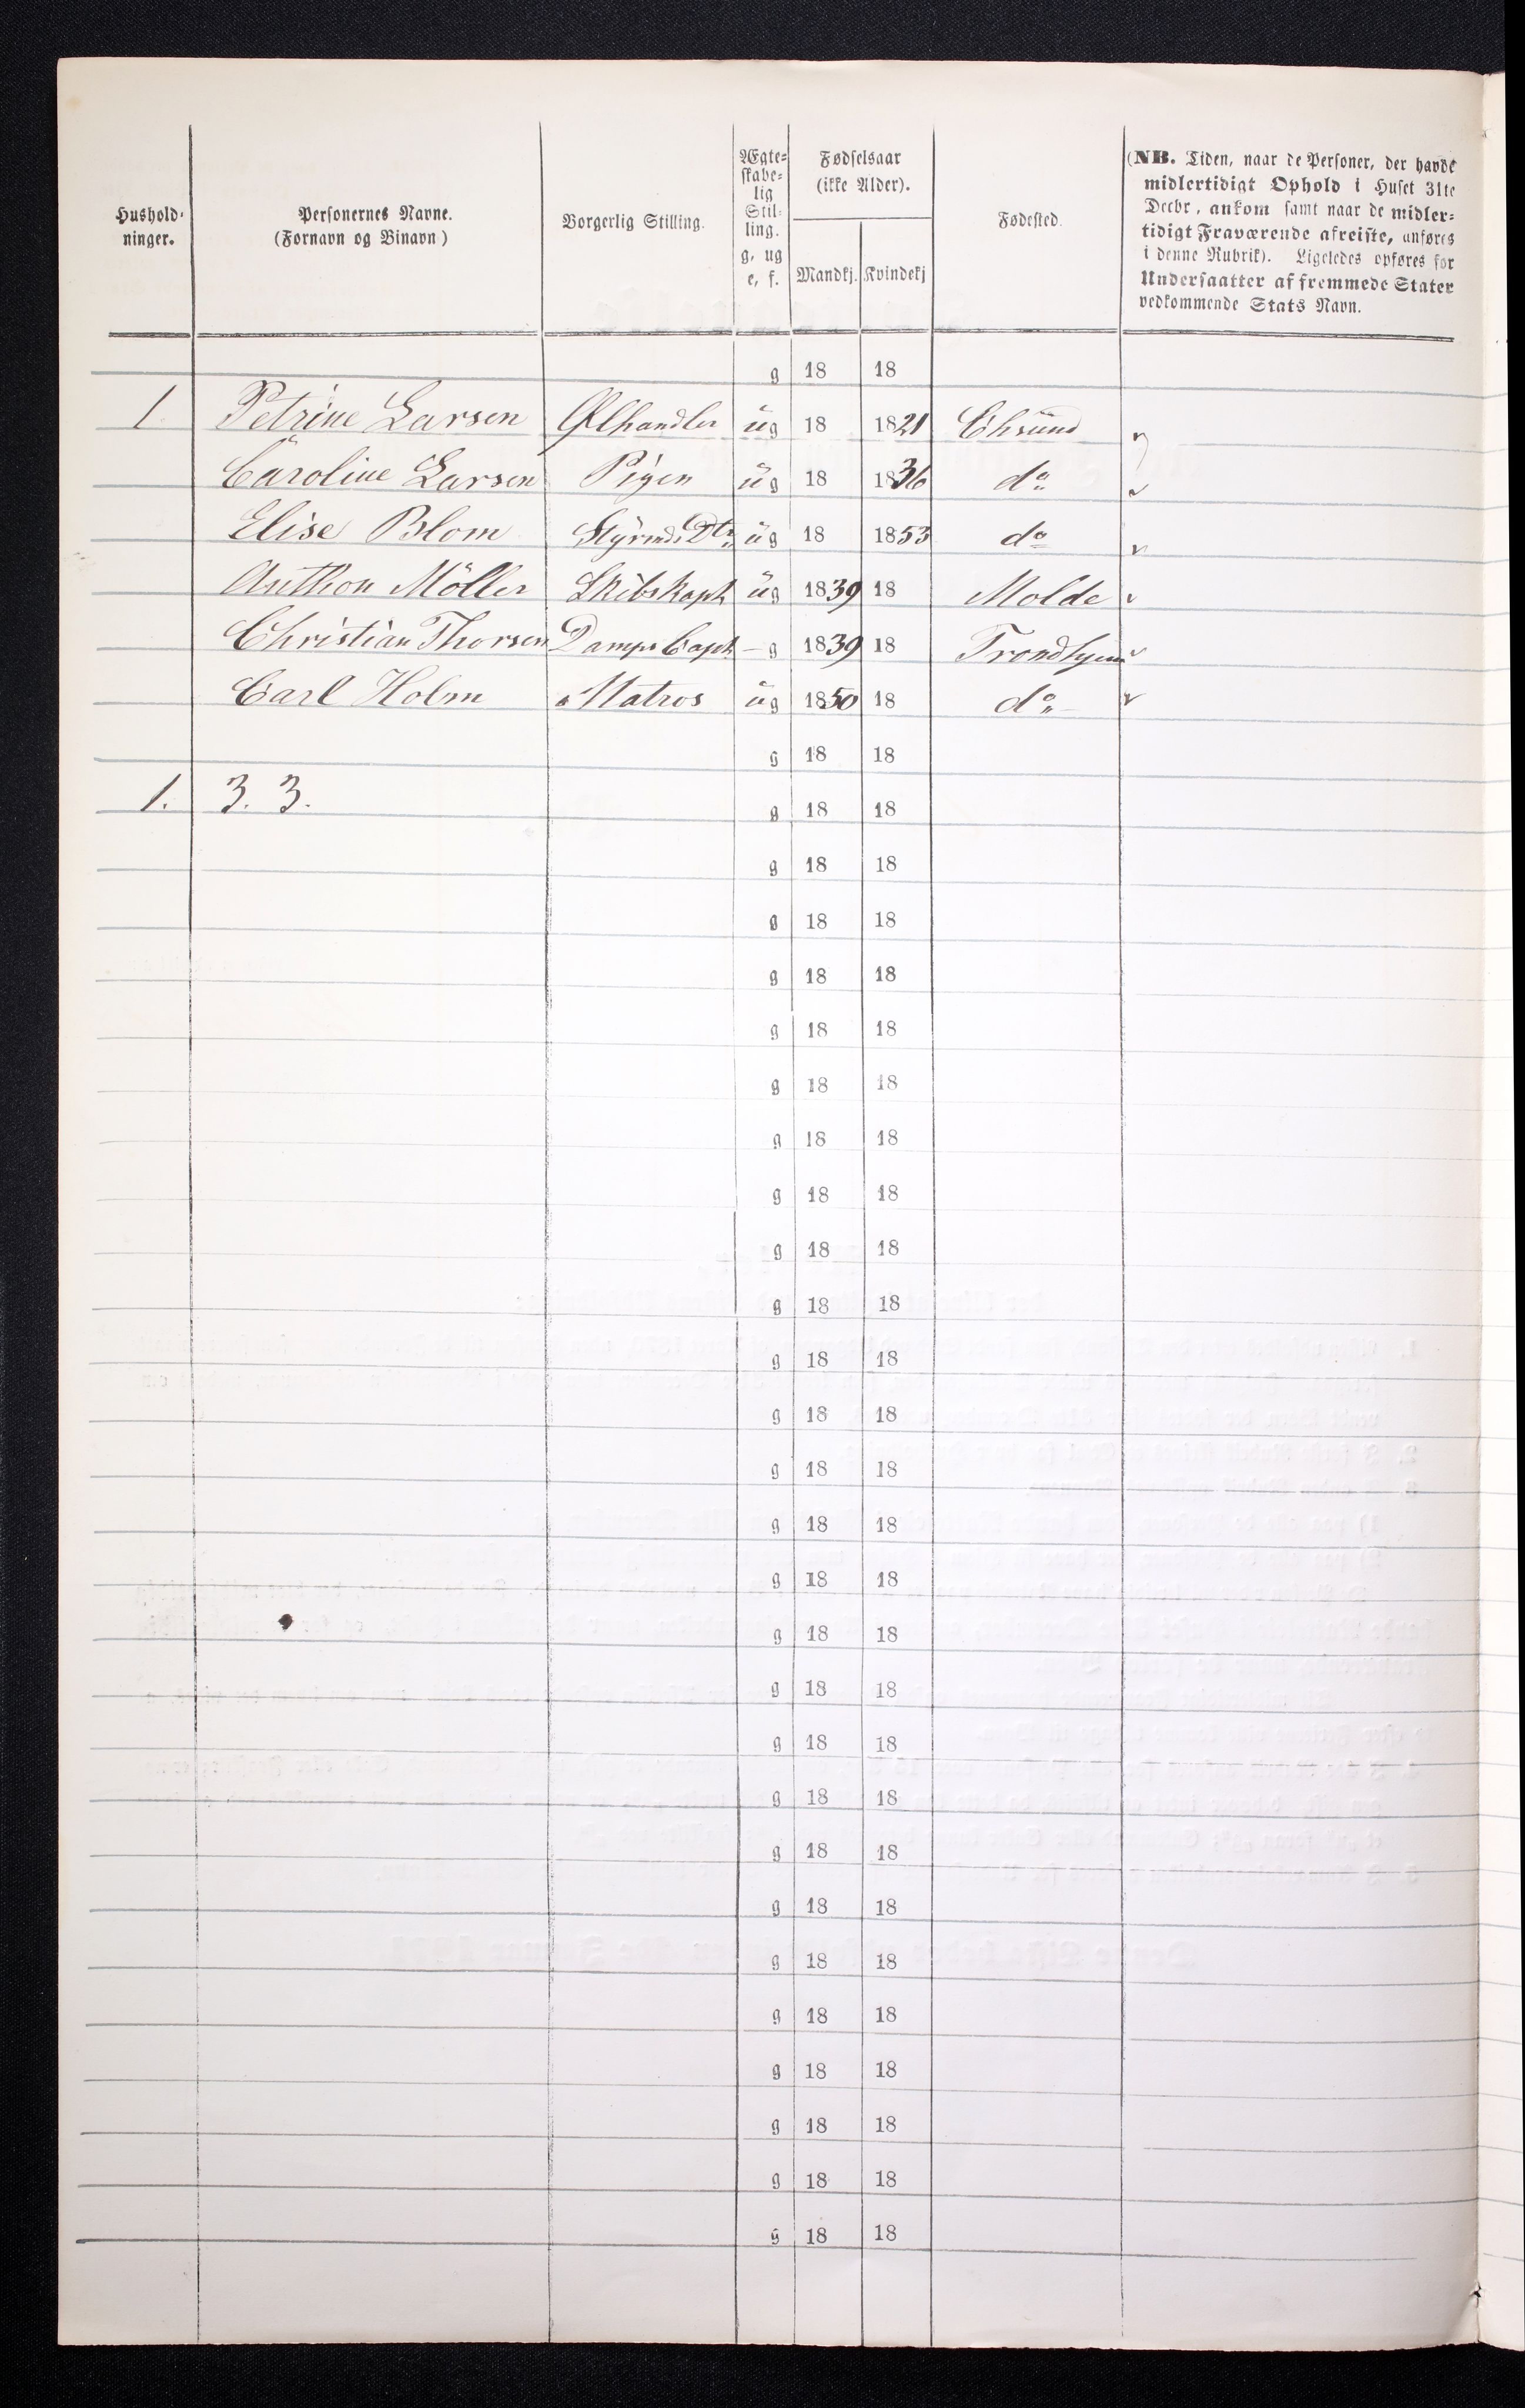 Hushold-
ninger.
Personernes Navne.
(Fornavn og Binavn)
Borgerlig Stilling.
Ægte-
skabe-
lig
Stil-
ling.
g, ug
e, f.
Fødselsaar
(ikke Alder).
Mandkj. Kvindekj
Fødested.
(NB. Tiden, naar de Personer, der havde
midlertidigt Ophold i Huset 31te
Decbr, ankom samt naar de midler-
tidigt Fraværende afreiste, anføres
i denne Rubrik). Ligeledes opføres for
Undersaatter af fremmede Stater
vedkommende Stats Navn.
g 18 18
1 Petrine Larsen Ølhandler ug 18 1821 Chsund
Caroline Larsen Pigen ug 18 1836 do
Elise Blom Styrmds Dtr ug 18 1853 do
Anthon Möller Skibskapt ug 1839 18 Molde
Christian Thorsen Damps Capt - g 1839 18 Trondhjem
Carl Holm Matros ug 1850 18 do
g 18 18
1. 3. 3. g 18 18
g 18 18
g 18 18
g 18 18
g 18 18
g 18 18
g 18 18
g 18 18
g 18 18
g 18 18
g 18 18
g 18 18
g 18 18
g 18 18
g 18 18
g 18 18
g 18 18
g 18 18
g 18 18
g 18 18
g 18 18
g 18 18
g 18 18
g 18 18
g 18 18
g 18 18
g 18 18